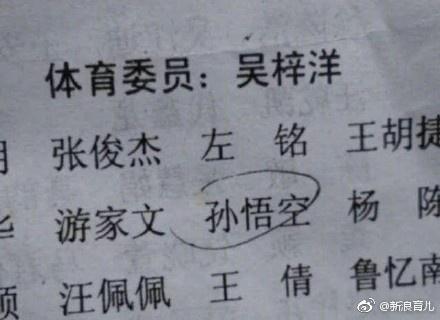 体育委员：吴梓洋
张俊杰 左 铭 王胡捷
游家文 孙悟空 杨 陈
汪佩佩 王 倩 鲁忆南
@新浪育儿